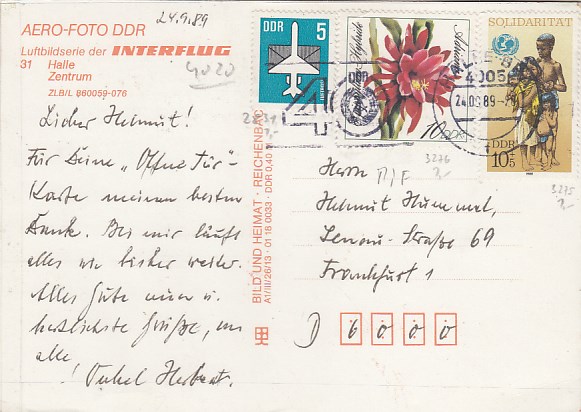 24.9.89
AERO-FOTO DDR
Luftbildserie der INTERFLUG
31 Halle
Zentrum
ZLB/L 880059-076
4020
Lieber Helmut!
Für Deine "Offne Tür"-
Karte meinen besten
Dank. Bei mir läuft
alles wie bisher weiter.
Alles Gute euer u.
herzlichste Grüße, an
alle!
Onkel Herbert.
BILD UND HEIMAT · REICHENBACH
A1/III/26/13 · 01 16 0033 · DDR 0,40
DDR 5
10 DDR
SOLIDARITÄT
DDR
10+5
4005
24.09.89
3276
3275
Herrn
Helmut Hummel,
Lenau-Straße 69
Frankfurt 1
D 6000